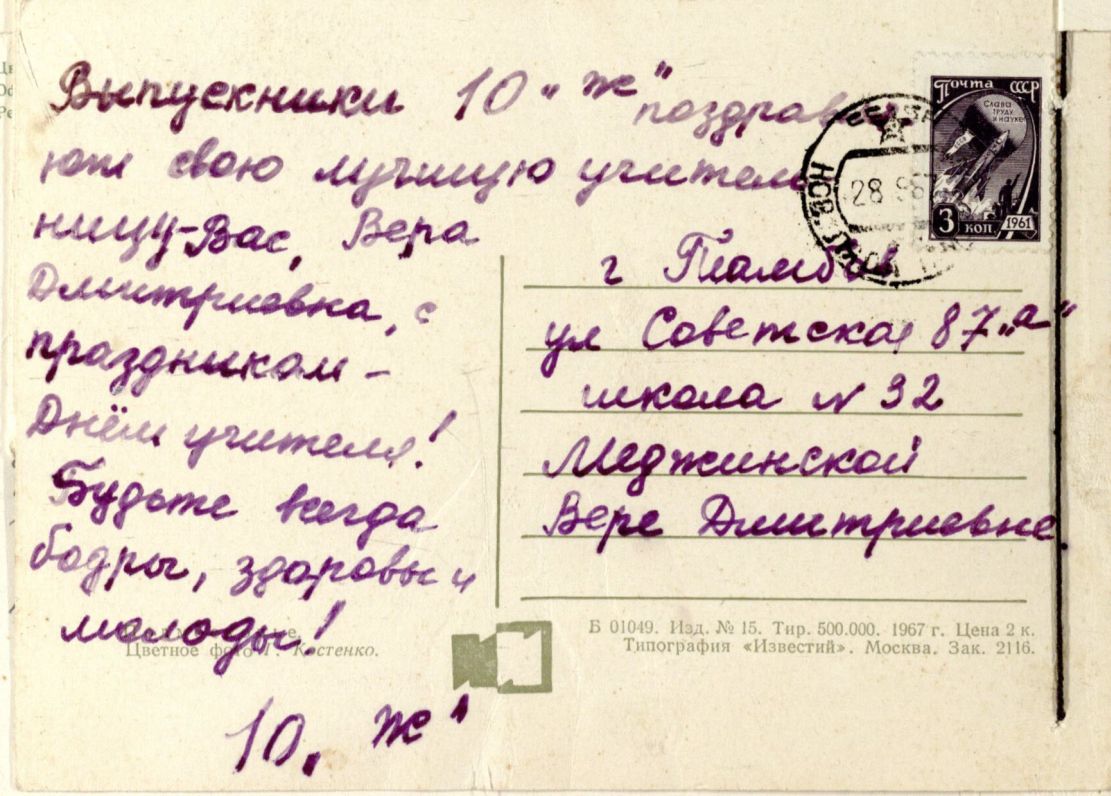 Выпускники 10 „Ж" поздрав
ют свою лучшую учитель
ницу - Вас, Вера
Дмитриевна, с
праздником -
Днём учителя!
Будьте всегда
бодры, здоровы и
молоды!
10 „Ж"
Почта СССР
Слава
труду
и науке!
3 коп. 1961
28 9 67
г Тамбов
ул Советская 87 „а"
школа № 32
Меджинской
Вере Дмитриевне
Цветное фото Г. Костенко.
Б 01049. Изд. № 15. Тир. 500.000. 1967 г. Цена 2 к.
Типография «Известий». Москва. Зак. 2116.